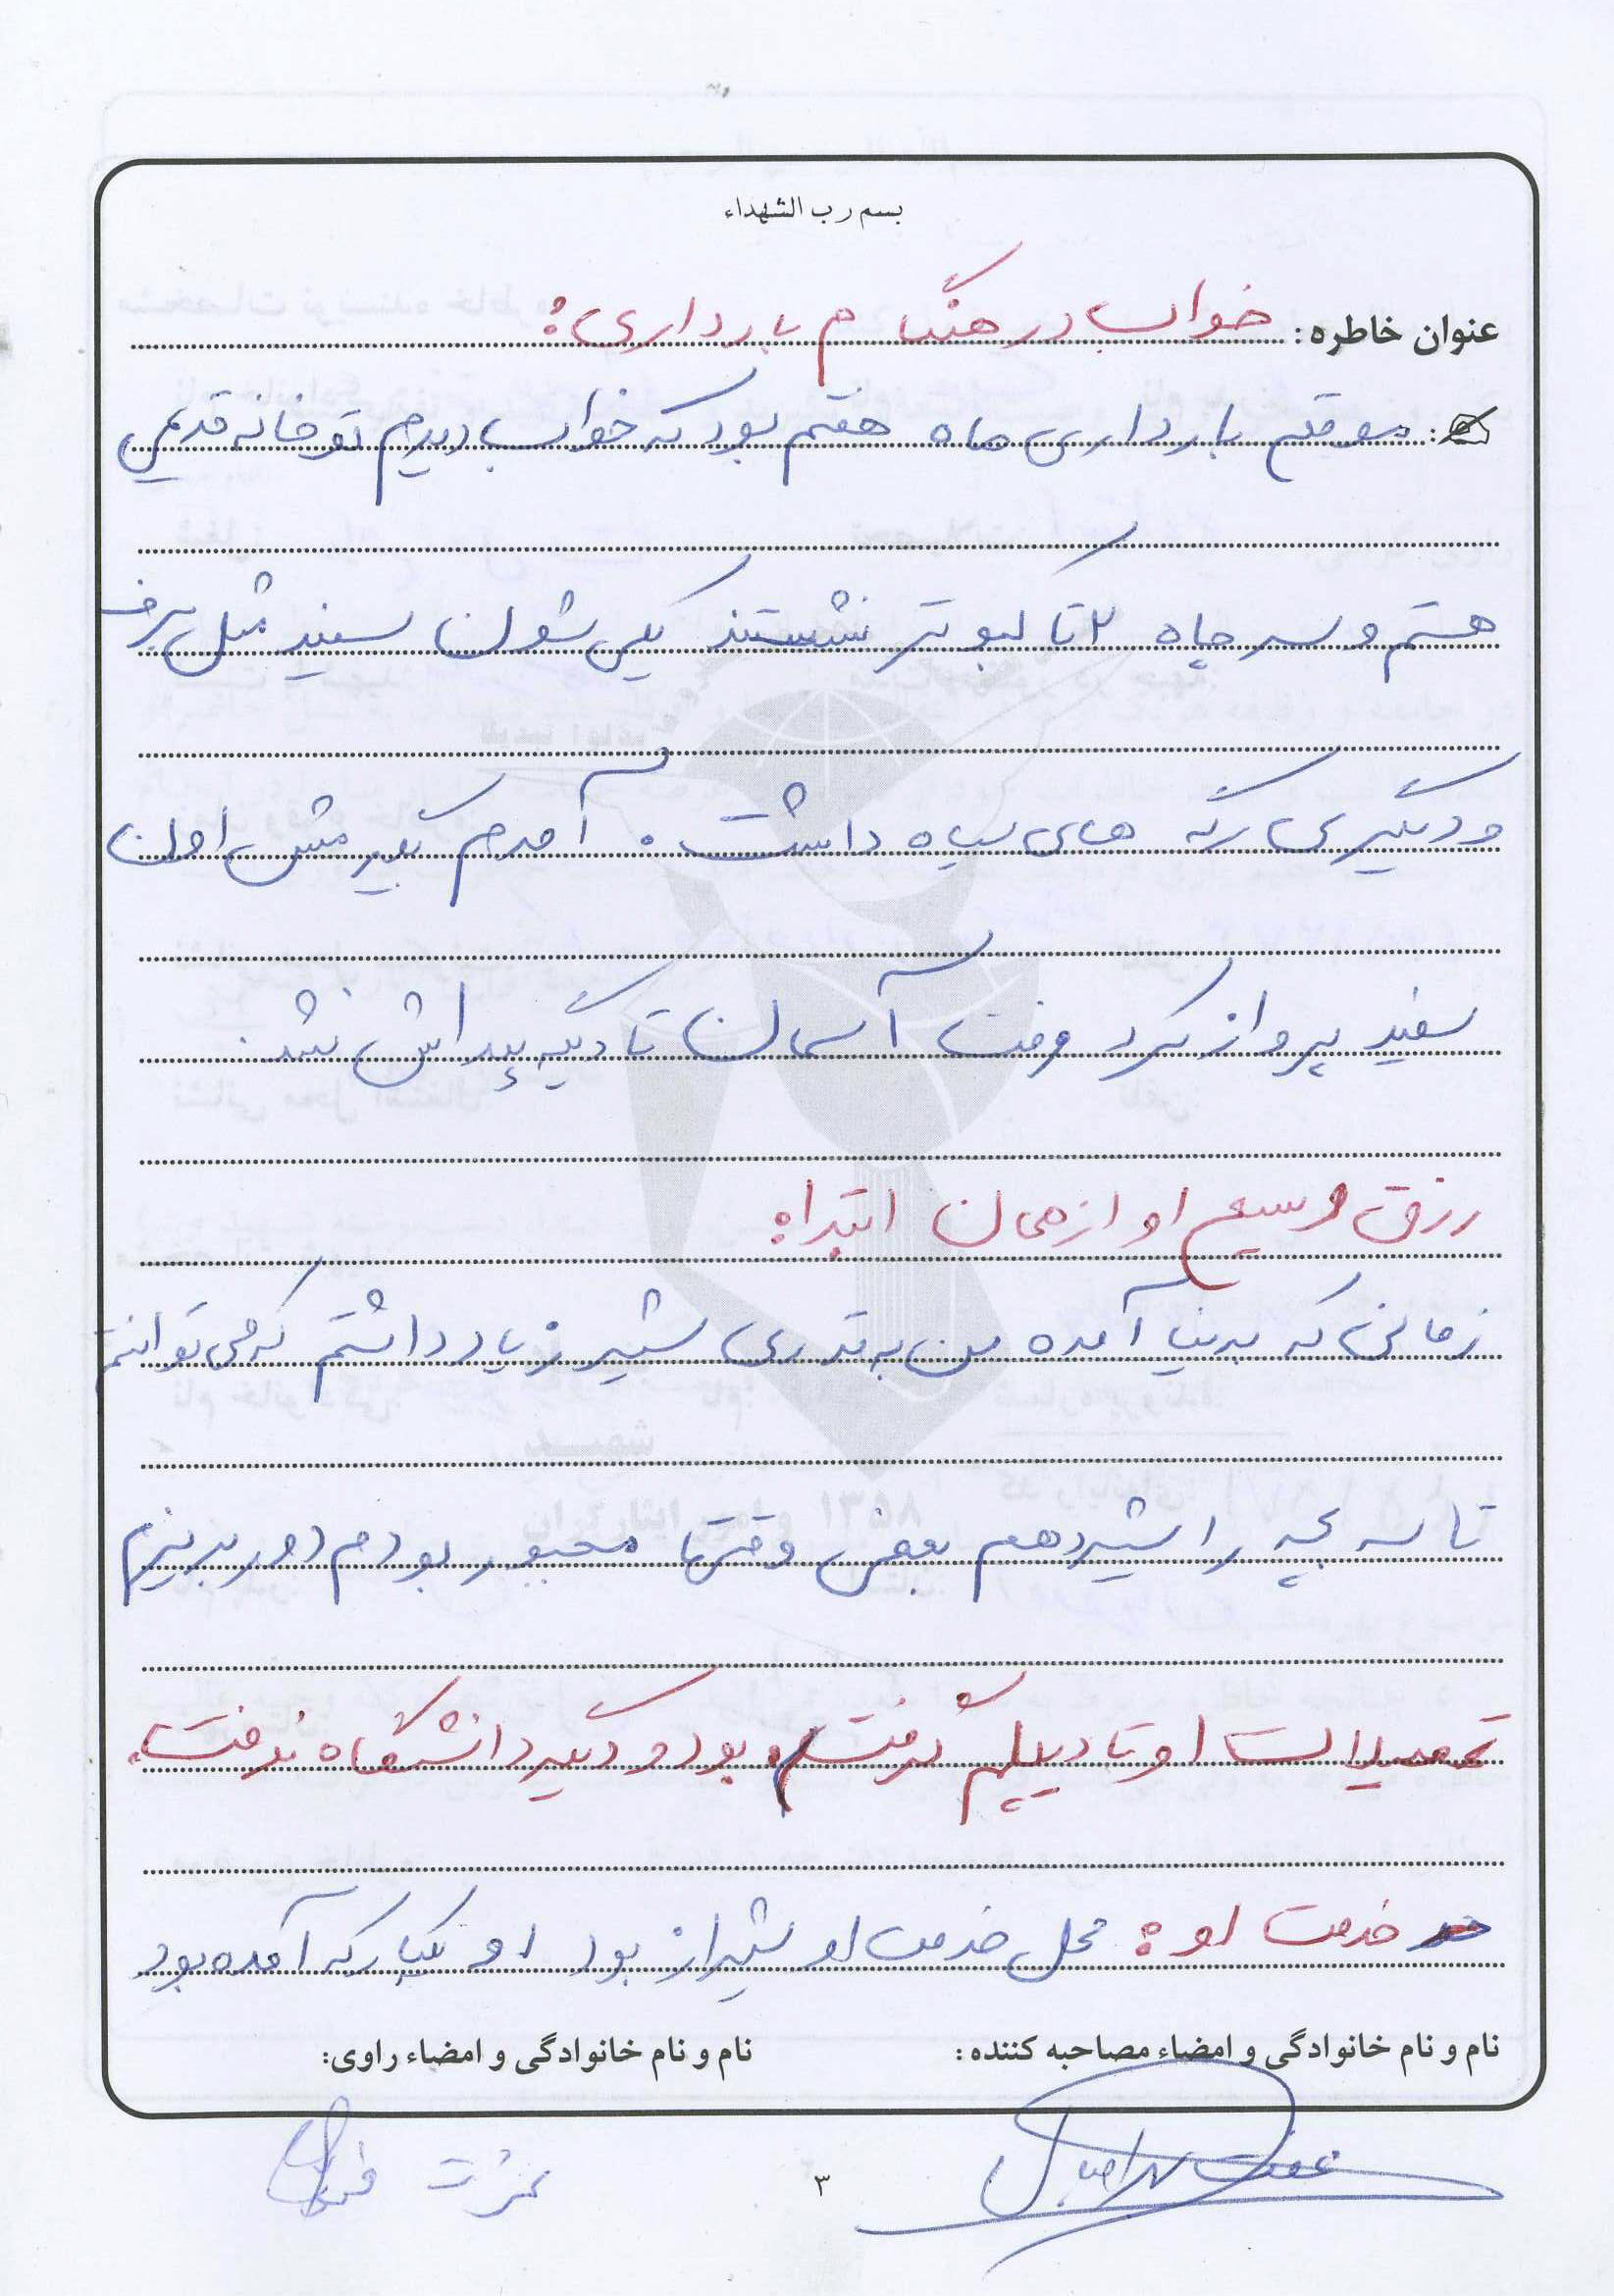 بسم رب الشهداء
عنوان خاطره: خواب در هنگام بارداری:
موقع بارداری ماه هفتم بود که خواب دیدم تو خانه قدیمی
هستم و سر چاه ۲ تا کبوتر نشستند یکی شون سفید مثل برف
و دیگیری رگه های سیاه داشت. آمدم بگیرمش اون
سفید پرواز کرد و رفت آسمان تا دیگه پیداش نشد.
رزق وسیع او از همان ابتدا:
زمانی که بدنیا آمده من به قدری شیر زیاد داشتم که می توانستم
تا سه بچه را شیر دهم بعضی وقتها مجبور بودم دور بریزم
تحصیلات او تا دیپلم گرفته بود و دیگیر دانشگاه نرفت.
خدمت او: محل خدمت او شیراز بود او یکبار که آمده بود
نام و نام خانوادگی و امضاء مصاحبه کننده:
نام و نام خانوادگی و امضاء راوی:
عفت
عزت
۳